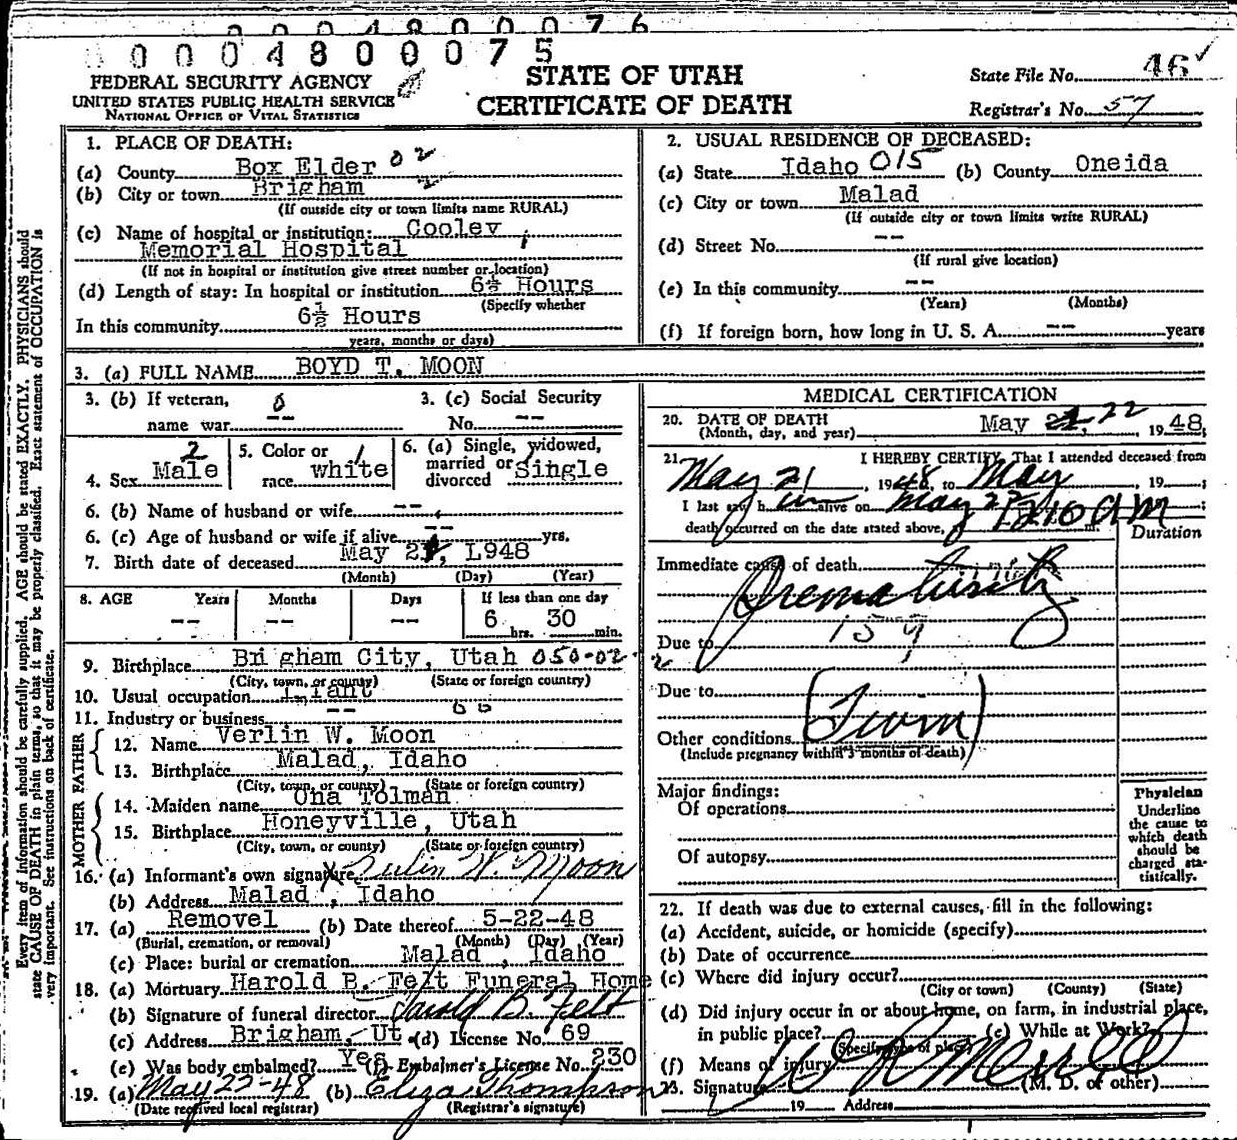 0 0 0 4 8 0 0 0 7 6
0 0 0 4 8 0 0 0 7 5
FEDERAL SECURITY AGENCY
UNITED STATES PUBLIC HEALTH SERVICE
NATIONAL OFFICE OF VITAL STATISTICS
STATE OF UTAH
CERTIFICATE OF DEATH
State File No. 46 ✓
Registrar's No. 57
1. PLACE OF DEATH:
(a) County Box Elder 02
(b) City or town Brigham 2
(If outside city or town limits name RURAL)
(c) Name of hospital or institution: Cooley
Memorial Hospital
(If not in hospital or institution give street number or location)
(d) Length of stay: In hospital or institution 6½ Hours
(Specify whether
In this community 6½ Hours
years, months or days)
2. USUAL RESIDENCE OF DECEASED:
(a) State Idaho 015 (b) County Oneida
(c) City or town Malad
(If outside city or town limits write RURAL)
(d) Street No. --
(If rural give location)
(e) In this community --
(Years) (Months)
(f) If foreign born, how long in U. S. A. -- years
3. (a) FULL NAME BOYD T. MOON
3. (b) If veteran, 0
name war --
3. (c) Social Security
No. --
4. Sex 2 Male
5. Color or 1
race white
6. (a) Single, widowed,
married or
divorced Single
6. (b) Name of husband or wife --
6. (c) Age of husband or wife if alive -- yrs.
7. Birth date of deceased May 21, 1948
(Month) (Day) (Year)
8. AGE Years Months Days If less than one day
-- -- -- 6 hrs. 30 min.
9. Birthplace Brigham City, Utah 050-02-2
(City, town, or county) (State or foreign country)
10. Usual occupation Infant
11. Industry or business --
FATHER
12. Name Verlin W. Moon
13. Birthplace Malad, Idaho
(City, town, or county) (State or foreign country)
MOTHER
14. Maiden name Una Tolman
15. Birthplace Honeyville, Utah
(City, town, or county) (State or foreign country)
16. (a) Informant's own signature X Verlin W. Moon
(b) Address Malad, Idaho
17. (a) Removel (b) Date thereof 5-22-48
(Burial, cremation, or removal) (Month) (Day) (Year)
(c) Place: burial or cremation Malad, Idaho
18. (a) Mortuary Harold B. Felt Funeral Home
(b) Signature of funeral director Harold B. Felt
(c) Address Brigham, Ut (d) License No. 69
(e) Was body embalmed? Yes (f) Embalmer's License No. 230
19. (a) May 22-48 (b) Eliza Thompson
(Date received local registrar) (Registrar's signature)
MEDICAL CERTIFICATION
20. DATE OF DEATH
(Month, day, and year) May 22, 1948;
21 I HEREBY CERTIFY, That I attended deceased from
May 21, 1948, to May, 19 ;
I last saw him alive on May 22
death occurred on the date stated above, 1210 am
Duration
Immediate cause of death
Prematurity
Due to 159
Due to
(Twin)
Other conditions
(Include pregnancy within 3 months of death)
Major findings:
Of operations
Of autopsy
Physician
Underline
the cause to
which death
should be
charged sta-
tistically.
22. If death was due to external causes, fill in the following:
(a) Accident, suicide, or homicide (specify)
(b) Date of occurrence
(c) Where did injury occur?
(City or town) (County) (State)
(d) Did injury occur in or about home, on farm, in industrial place,
in public place? (e) While at Work?
(Specify type of place)
(f) Means of injury
23. Signature (M. D. or other)
19 Address
Every item of information should be carefully supplied. AGE should be stated EXACTLY. PHYSICIANS should
state CAUSE OF DEATH in plain terms, so that it may be properly classified. Exact statement of OCCUPATION is
very important. See instructions on back of certificate.